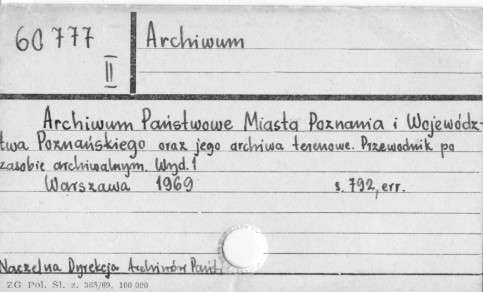 60777
II
Archiwum
Archiwum Państwowe Miasta Poznania i Wojewódz-
twa Poznańskiego oraz jego archiwa terenowe. Przewodnik po
zasobie archiwalnym. Wyd.1
Warszawa 1969 s. 792, err.
Naczelna Dyrekcja Archiwów Pańs
ZG Pol. Śl. z. 365/69, 100.000